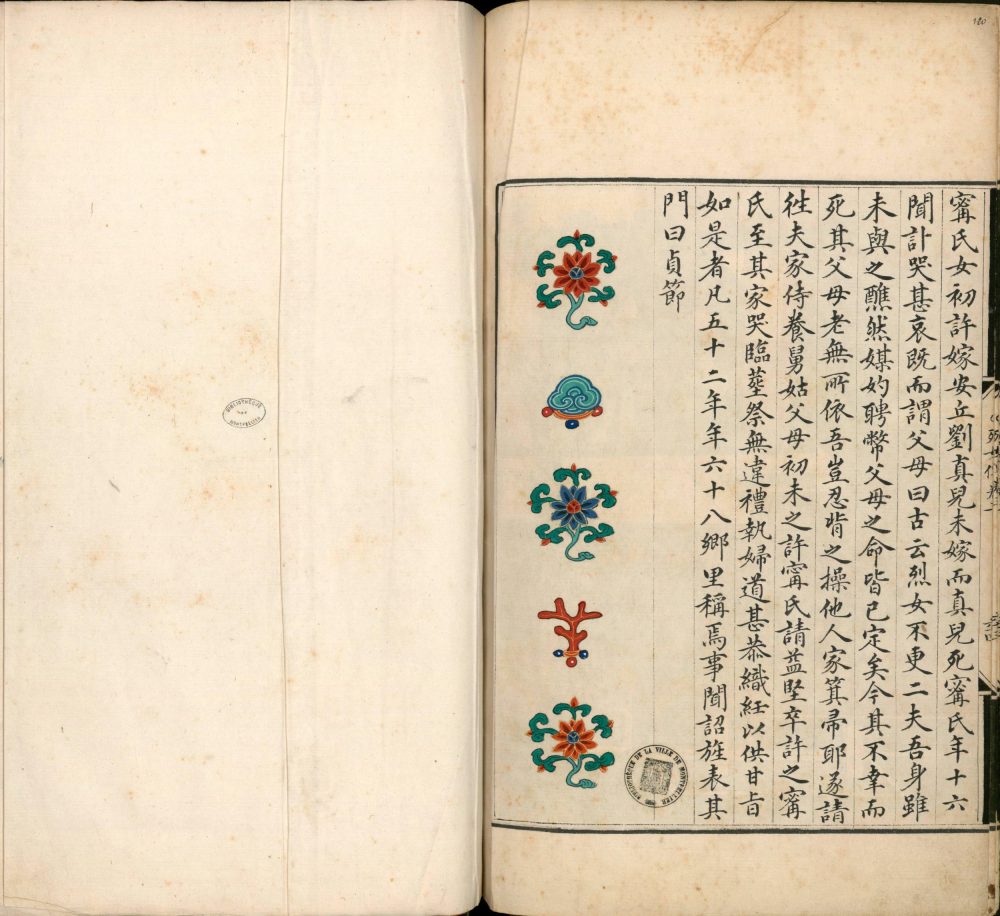 甯氏女初許嫁安丘劉真兒未嫁而真兒死甯氏年十六
聞訃哭甚哀既而謂父母曰古云烈女不更二夫吾身雖
未與之醮然媒妁聘幣父母之命皆已定矣今其不幸而
死其父母老無所依吾豈忍背之操他人家箕帚耶遂請
徃夫家侍養舅姑父母初未之許甯氏請益堅卒許之甯
氏至其家哭臨塟祭無違禮執婦道甚恭織紝以供甘旨
如是者凡五十二年年六十八鄉里稱焉事聞詔旌表其
門曰貞節
BIBLIOTHÈQUE DE LA VILLE DE MONTPELLIER
BIBLIOTHÈQUE
MONTPELLIER
120